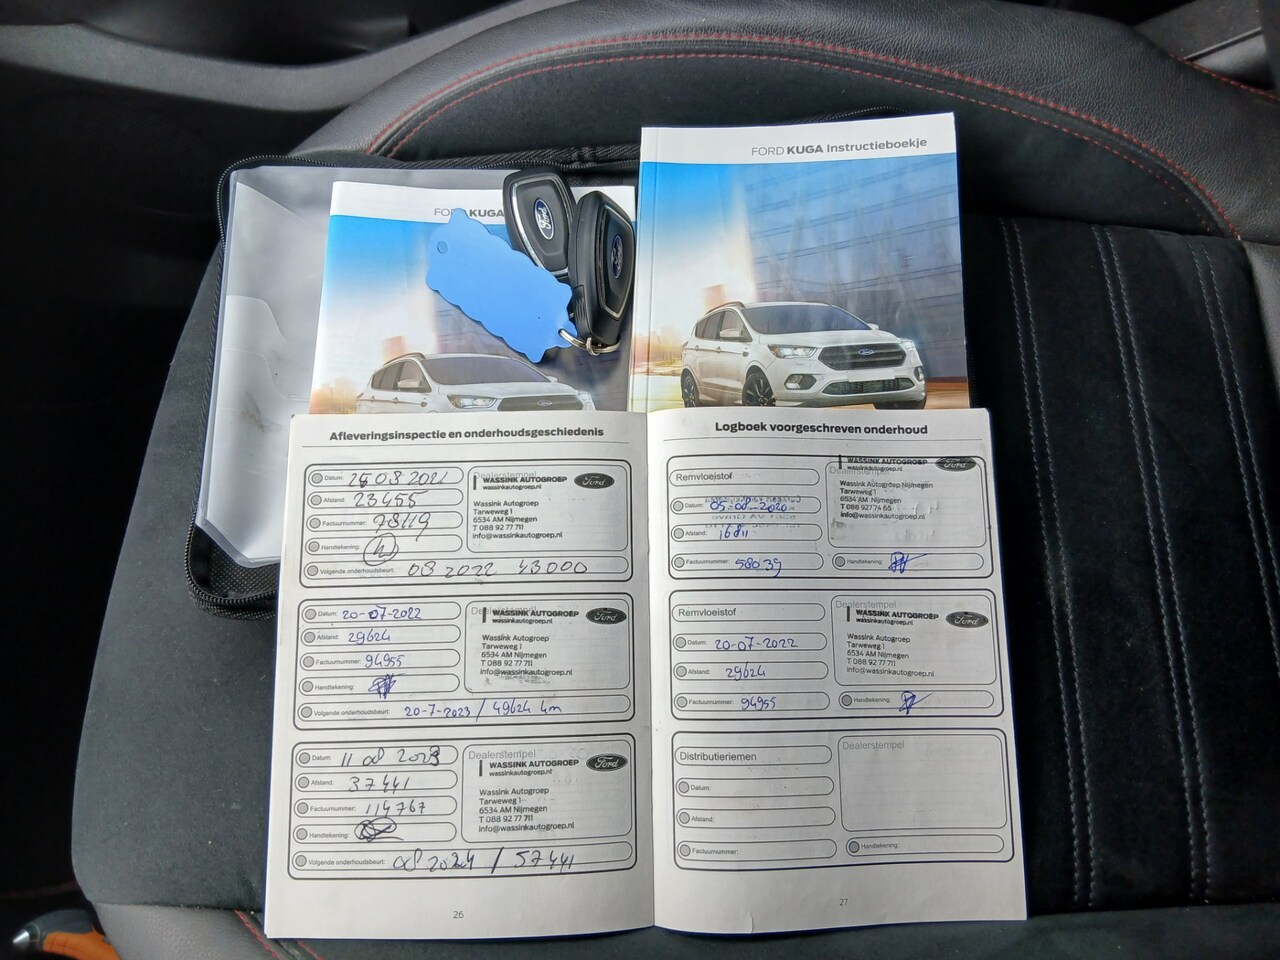 FORD KUGA Instructieboekje
KUGA
Ford
Ford
Afleveringsinspectie en onderhoudsgeschiedenis
Datum: 25 08 2021
Afstand: 23455
Factuurnummer: 78119
Handtekening:
Volgende onderhoudsbeurt: 08 2022 43000
Dealerstempel
WASSINK AUTOGROEP
wassinkautogroep.nl
Ford
Wassink Autogroep
Tarweweg 1
6534 AM Nijmegen
T 088 92 77 711
info@wassinkautogroep.nl
Datum: 20-07-2022
Afstand: 29624
Factuurnummer: 94955
Handtekening:
Volgende onderhoudsbeurt: 20-7-2023 / 49624 km
Dealerstempel
WASSINK AUTOGROEP
wassinkautogroep.nl
Ford
Wassink Autogroep
Tarweweg 1
6534 AM Nijmegen
T 088 92 77 711
info@wassinkautogroep.nl
Datum: 11 08 2023
Afstand: 37441
Factuurnummer: 114767
Handtekening:
Volgende onderhoudsbeurt: 08 2024 / 57441
Dealerstempel
WASSINK AUTOGROEP
wassinkautogroep.nl
Ford
Wassink Autogroep
Tarweweg 1
6534 AM Nijmegen
T 088 92 77 711
info@wassinkautogroep.nl
26
Logboek voorgeschreven onderhoud
Remvloeistof
Datum: 05-08-2020
Afstand: 16811
Factuurnummer: 58039
Dealerstempel
WASSINK AUTOGROEP
wassinkautogroep.nl
Ford
Wassink Autogroep Nijmegen
Tarweweg 1
6534 AM Nijmegen
T 088 927 74 65
info@wassinkautogroep.nl
Handtekening:
Remvloeistof
Datum: 20-07-2022
Afstand: 29624
Factuurnummer: 94955
Dealerstempel
WASSINK AUTOGROEP
wassinkautogroep.nl
Ford
Wassink Autogroep
Tarweweg 1
6534 AM Nijmegen
T 088 92 77 711
info@wassinkautogroep.nl
Handtekening:
Distributieriemen
Datum:
Afstand:
Factuurnummer:
Dealerstempel
Handtekening:
27